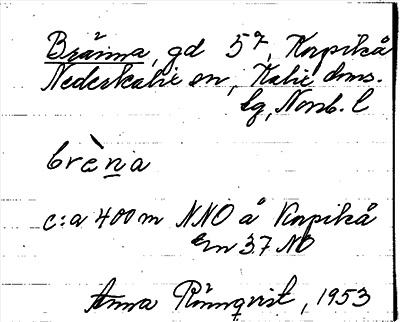 Bränna, gd 5⁷, Korpikå
Nederkalix sn, Kalix doms.
lg, Norrb. l
brèn̲a
c:a 400 m NNO å Korpikå
sm 37 NO
Anna Rönnqvist, 1953